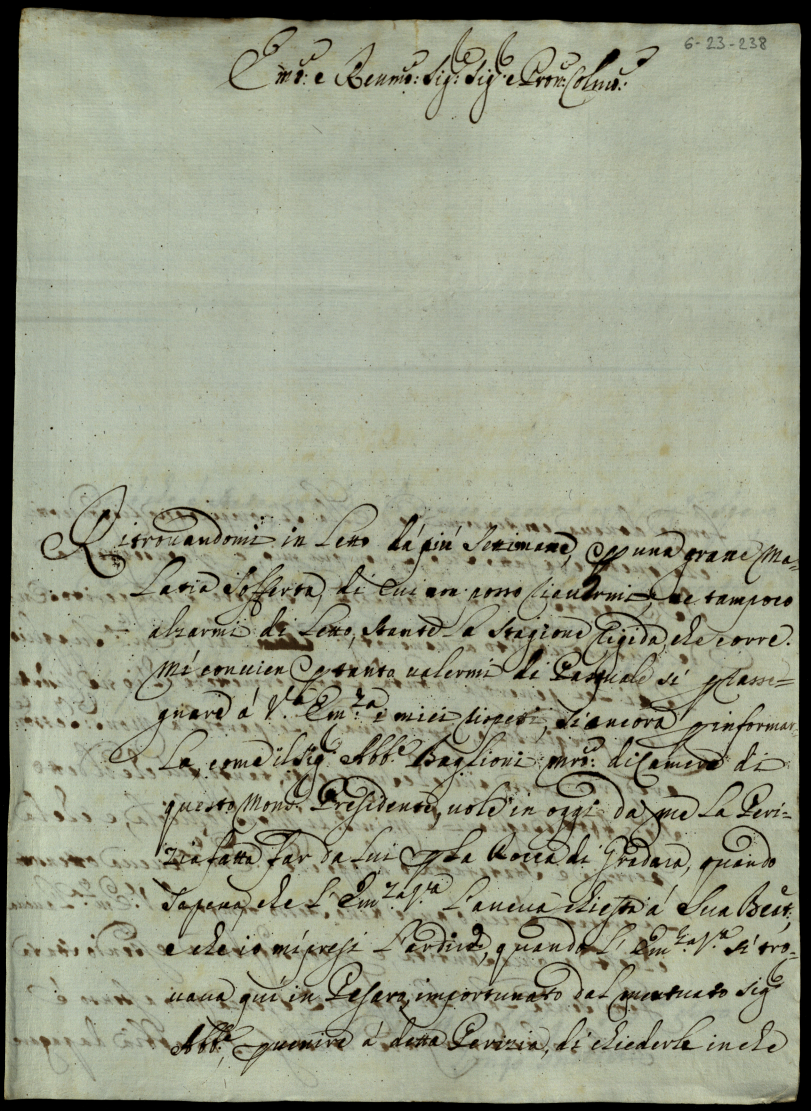 6-23-238
Emo: e Revmo: Sig:re Sig:re e Pron: Colmo:
Ritrouandomi in Letto da più Settimane, p una graue Ma-
Latia Sofferta, di cui non posso riauermi, ne tampoco
alzarmi di Letto, stante La Stagione rigida, che corre.
Mi conuien p tanto ualermi di Pasquale si p rasse-
gnare á V.ra Em.za i miei rispetti, si ancora p informar
La, come il Sig.r Abb.e Baglioni Mro: di Camera di
questo Mons.r Presidente, uole in oggi da me La Peri-
zia fatta far da Lui p La Rocca di Gradara, quando
Sapeua, che L'Em.za V.ra L'aueua chiesta á Sua Beat.,
e che io mi presi L'ardire, quando L'Em.za V.ra si tro-
uaua qui in Pesaro, importunato dal mentuato Sig.r
Abb.e, p uenire á detta Perizia, di chiederle in che